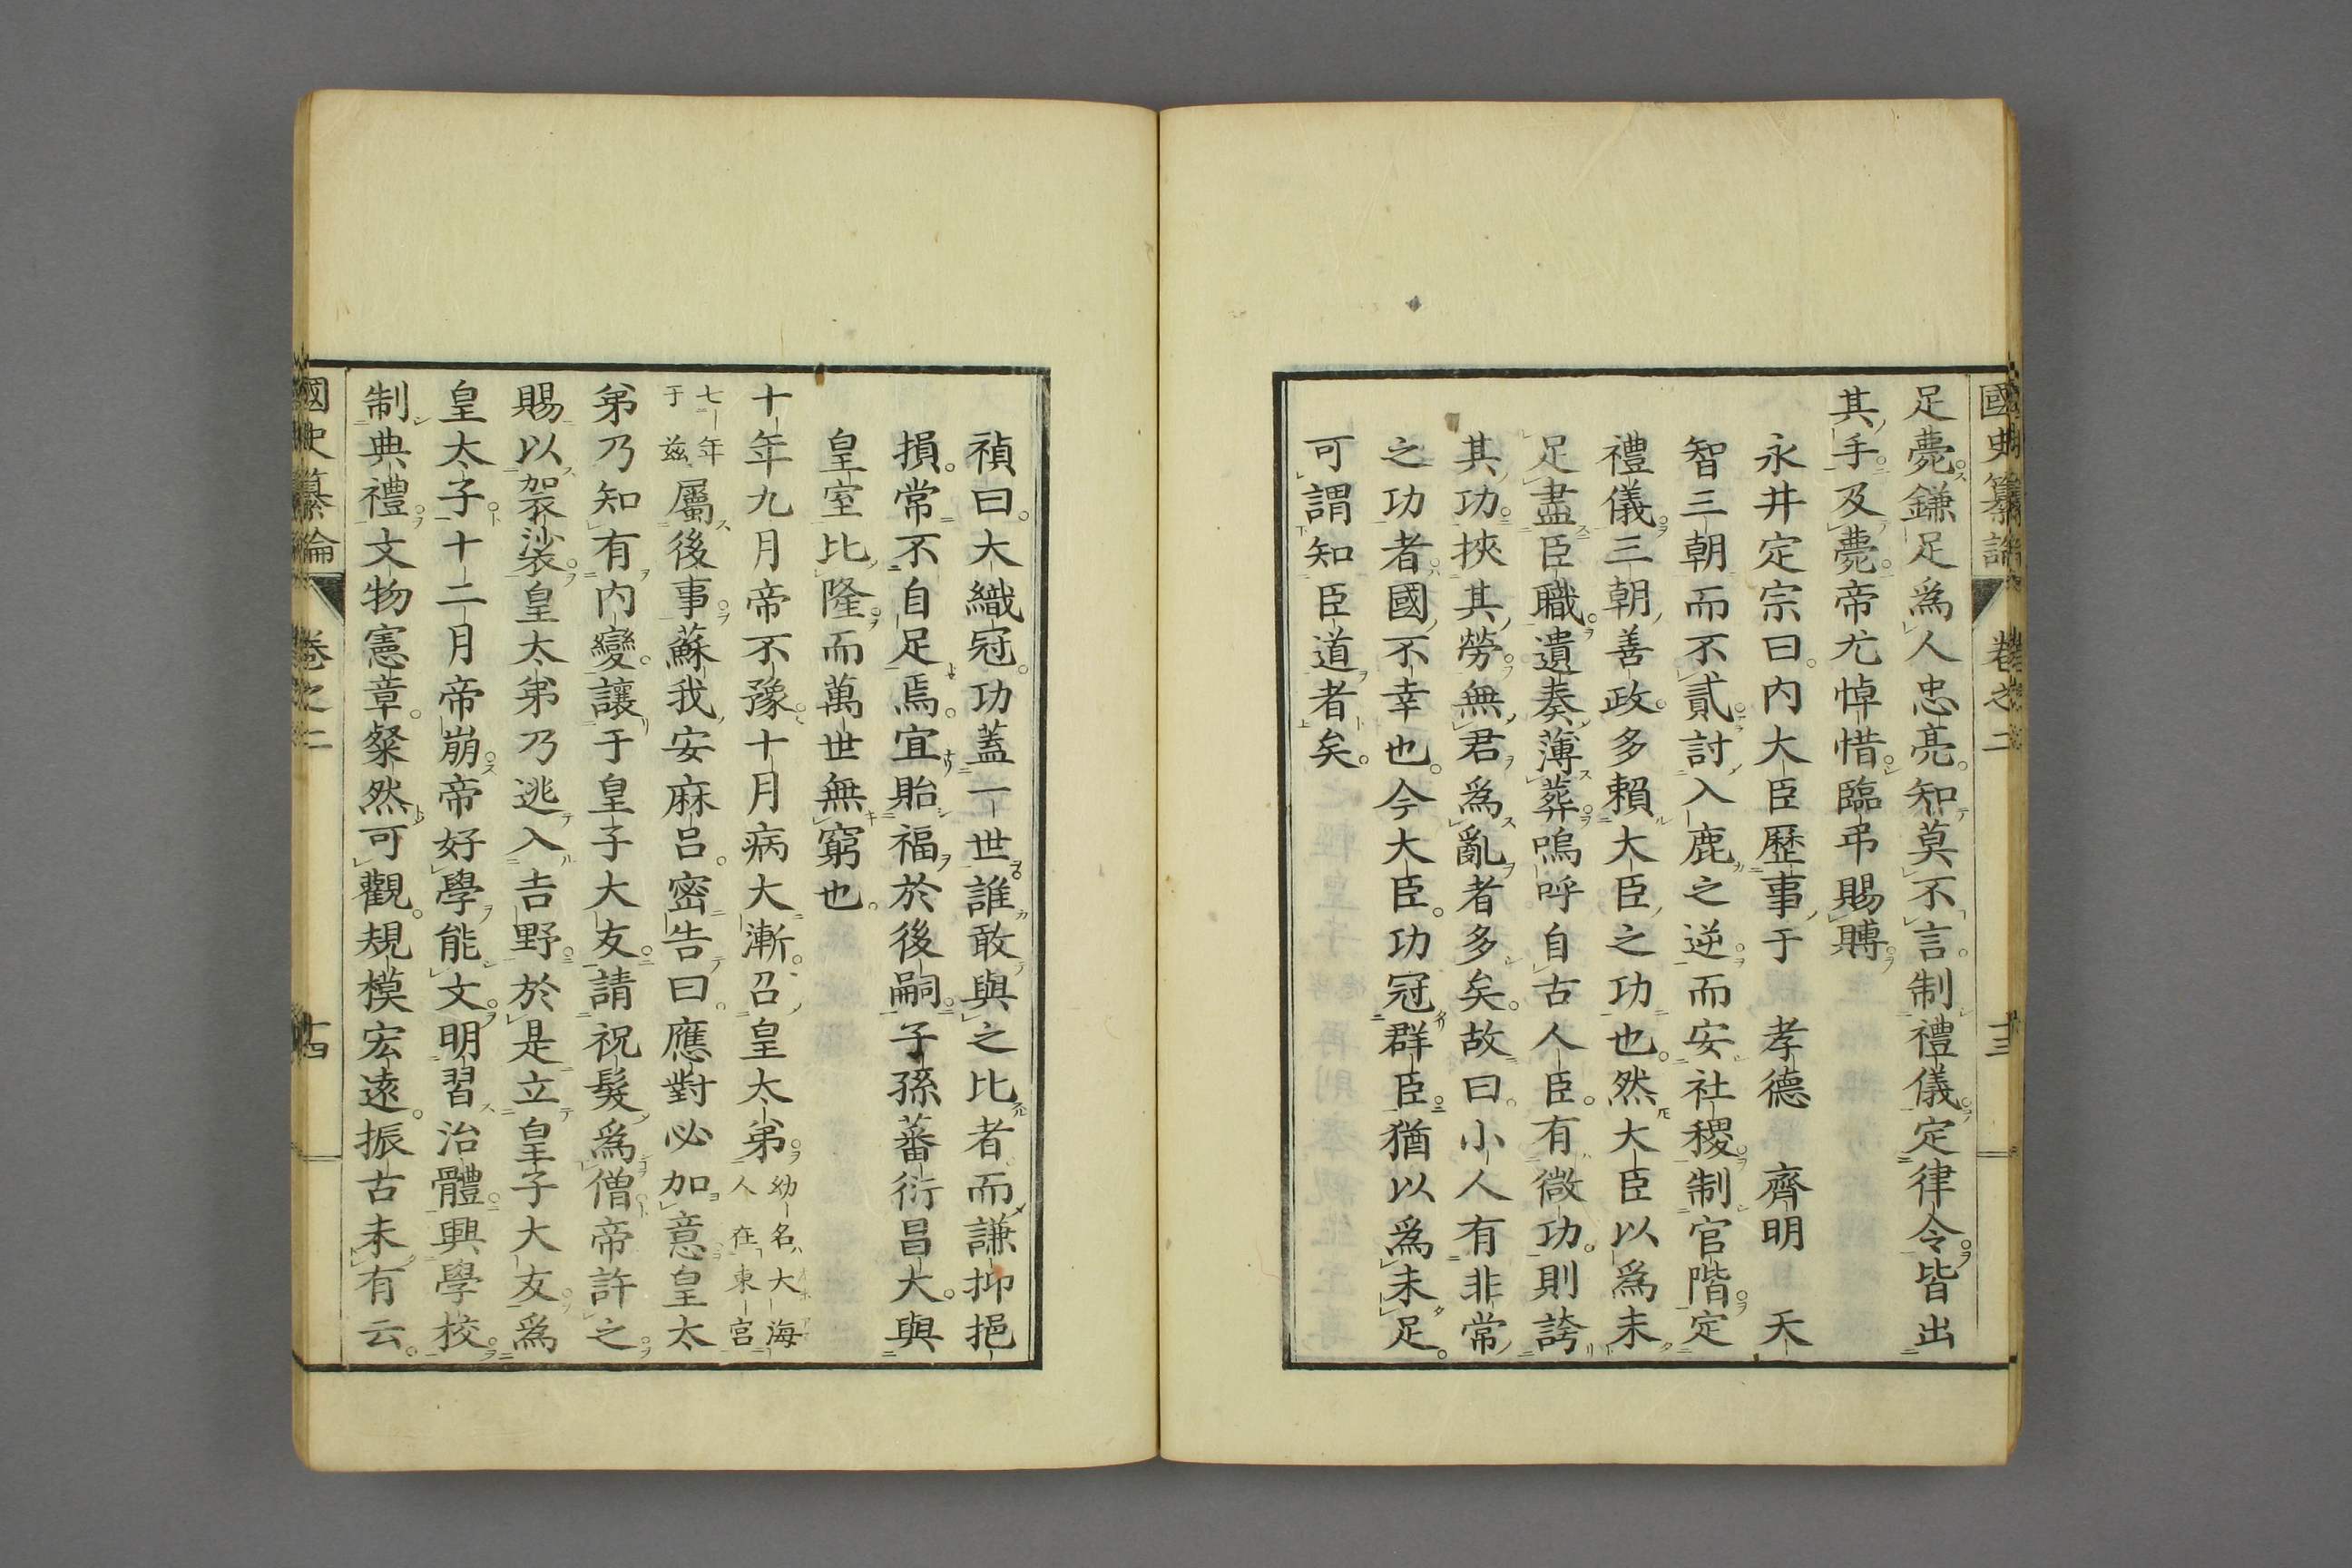 國史纂論 卷之二 十三
足薨。鎌足爲人忠亮。知莫不言。制禮儀。定律令。皆出
其手。及薨。帝尤悼惜。臨弔賜賻。
永井定宗曰。内大臣歷事于 孝德 齊明 天
智三朝而不貳。討入鹿之逆。而安社稷。制官階。定
禮儀。三朝善政。多賴大臣之功也。然大臣以爲未
足盡臣職。遺奏薄葬。嗚呼自古人臣。有微功。則誇
其功。挾其勞。無君爲亂者多矣。故曰。小人有非常
之功者。國不幸也。今大臣。功冠群臣。猶以爲未足。
可謂知臣道者矣。
禎曰。大織冠。功蓋一世。誰敢與之比者。而謙抑挹
損。常不自足焉。宜貽福於後嗣。子孫蕃衍昌大。與
皇室比隆。而萬世無窮也。
十年九月帝不豫。十月病大漸。召皇太弟。幼名大海
人在東宮
七年
于茲
屬後事。蘇我安麻呂。密告曰。應對必加意。皇太
弟乃知有内變。讓于皇子大友。請祝髮爲僧。帝許之。
賜以袈裟。皇太弟乃逃入吉野。於是立皇子大友。爲
皇太子。十二月帝崩。帝好學能文。明習治體。興學校。
制典禮。文物憲章。粲然可觀。規模宏遠。振古未有云。
國史纂論 卷之二 十四